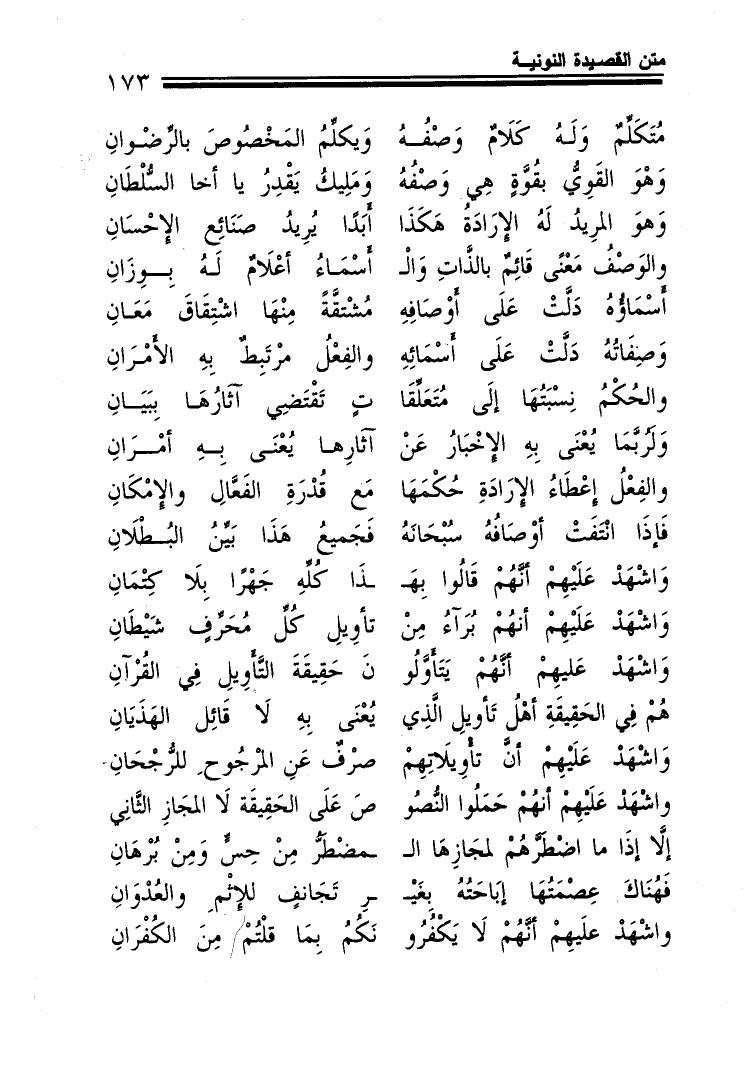 متن القصيدة النونيــة
١٧٣
مُتَكَلِّمٌ وَلَـهُ كَلَامٌ وَصْفُــهُ وَيكلِّمُ المَخْصُوصَ بالرِّضْـوانِ
وَهْوَ القَوِيُّ بقُوَّةٍ هِي وَصْفُهُ وَمَلِيكُ يَقْدِرُ يا أخا السُّلْطَانِ
وَهوَ المرِيدُ لَهُ الإرَادَةُ هكَذَا أبَدًا يُرِيدُ صَنَائِع الإحْسَانِ
والوَصْفُ مَعْنًى قَائِمٌ بالذَّاتِ وَالْـ أسْمَـاءُ أعْلَامٌ لَـهُ بِـوِزَانِ
أسْمَاؤُهُ دَلَّتْ عَلَى أوْصَافِهِ مُشْتقَّةً مِنْهَا اشْتِقَاقَ مَعَـانِ
وَصِفَاتُهُ دَلَّتْ عَلَى أسْمَائِهِ والفِعْلُ مرْتَبِطٌ بِهِ الأمْـرَانِ
والحُكْمُ نِسْبَتُهَا إلَى مُتَعَلِّقَا تٍ تَقْتَضِي آثَارُهَـا بِبَيَـانِ
وَلَرُبَّمَا يُعْنَى بِهِ الإخْبَارُ عَنْ آثَارِهـا يُعْنَـى بِــهِ أمْــرَانِ
والفِعْلُ إعْطَاءُ الإرَادَةِ حُكْمَهَا مَع قُدْرَةِ الفَعَّالِ والإمْكَانِ
فَإذَا انْتَفَتْ أوْصَافُهُ سُبْحَانَهُ فَجَميعُ هَذَا بَيِّنُ البُـطْلَانِ
وَاشْهَدْ عَلَيْهِمْ أنَّهُمْ قَالُوا بِهَـ ـذَا كُلِّهِ جَهْرًا بِلَا كِتْمَانِ
وَاشْهَدْ عَلَيْهِمْ أنهُمْ بُرَآءُ مِنْ تأوِيلِ كُلِّ مُحَرِّفٍ شَيْطَانِ
وَاشْهَدْ عَليهِمْ أنَّهُمْ يَتَأوَّلُو نَ حَقِيقَةَ التَّأْوِيلِ فِي القُرْآنِ
هُمْ فِي الحَقِيقَةِ أهْلُ تَأوِيلِ الَّذِي يُعْنَى بِهِ لَا قَائِلِ الهَذَيَانِ
وَاشْهَدْ عَلَيْهِمْ أنَّ تأْوِيلَاتِهِمْ صرْفٌ عَنِ المرْجُوحِ للرُّجْحَانِ
واشْهَدْ عَلَيْهِمْ أنهُمْ حَمَلُوا النُّصُو صَ عَلَى الحَقِيقَةِ لَا المجَازِ الثَّانِي
إلَّا إذَا ما اضْطَرَّهُمْ لمجَازِهَا الْـ ـمضْطَرُّ مِنْ حِسٍّ وَمِنْ بُرْهَانِ
فَهُنَاكَ عِصْمَتُهَا إبَاحَتُهُ بِغَيْـ ـرِ تَجَانفٍ للإثْمِ والعُدْوَانِ
واشْهَدْ علَيهِمْ أنَّهُمْ لَا يَكْفُرُو نَكُمُ بِمَا قلْتُمْ مِنَ الكُفْرَانِ